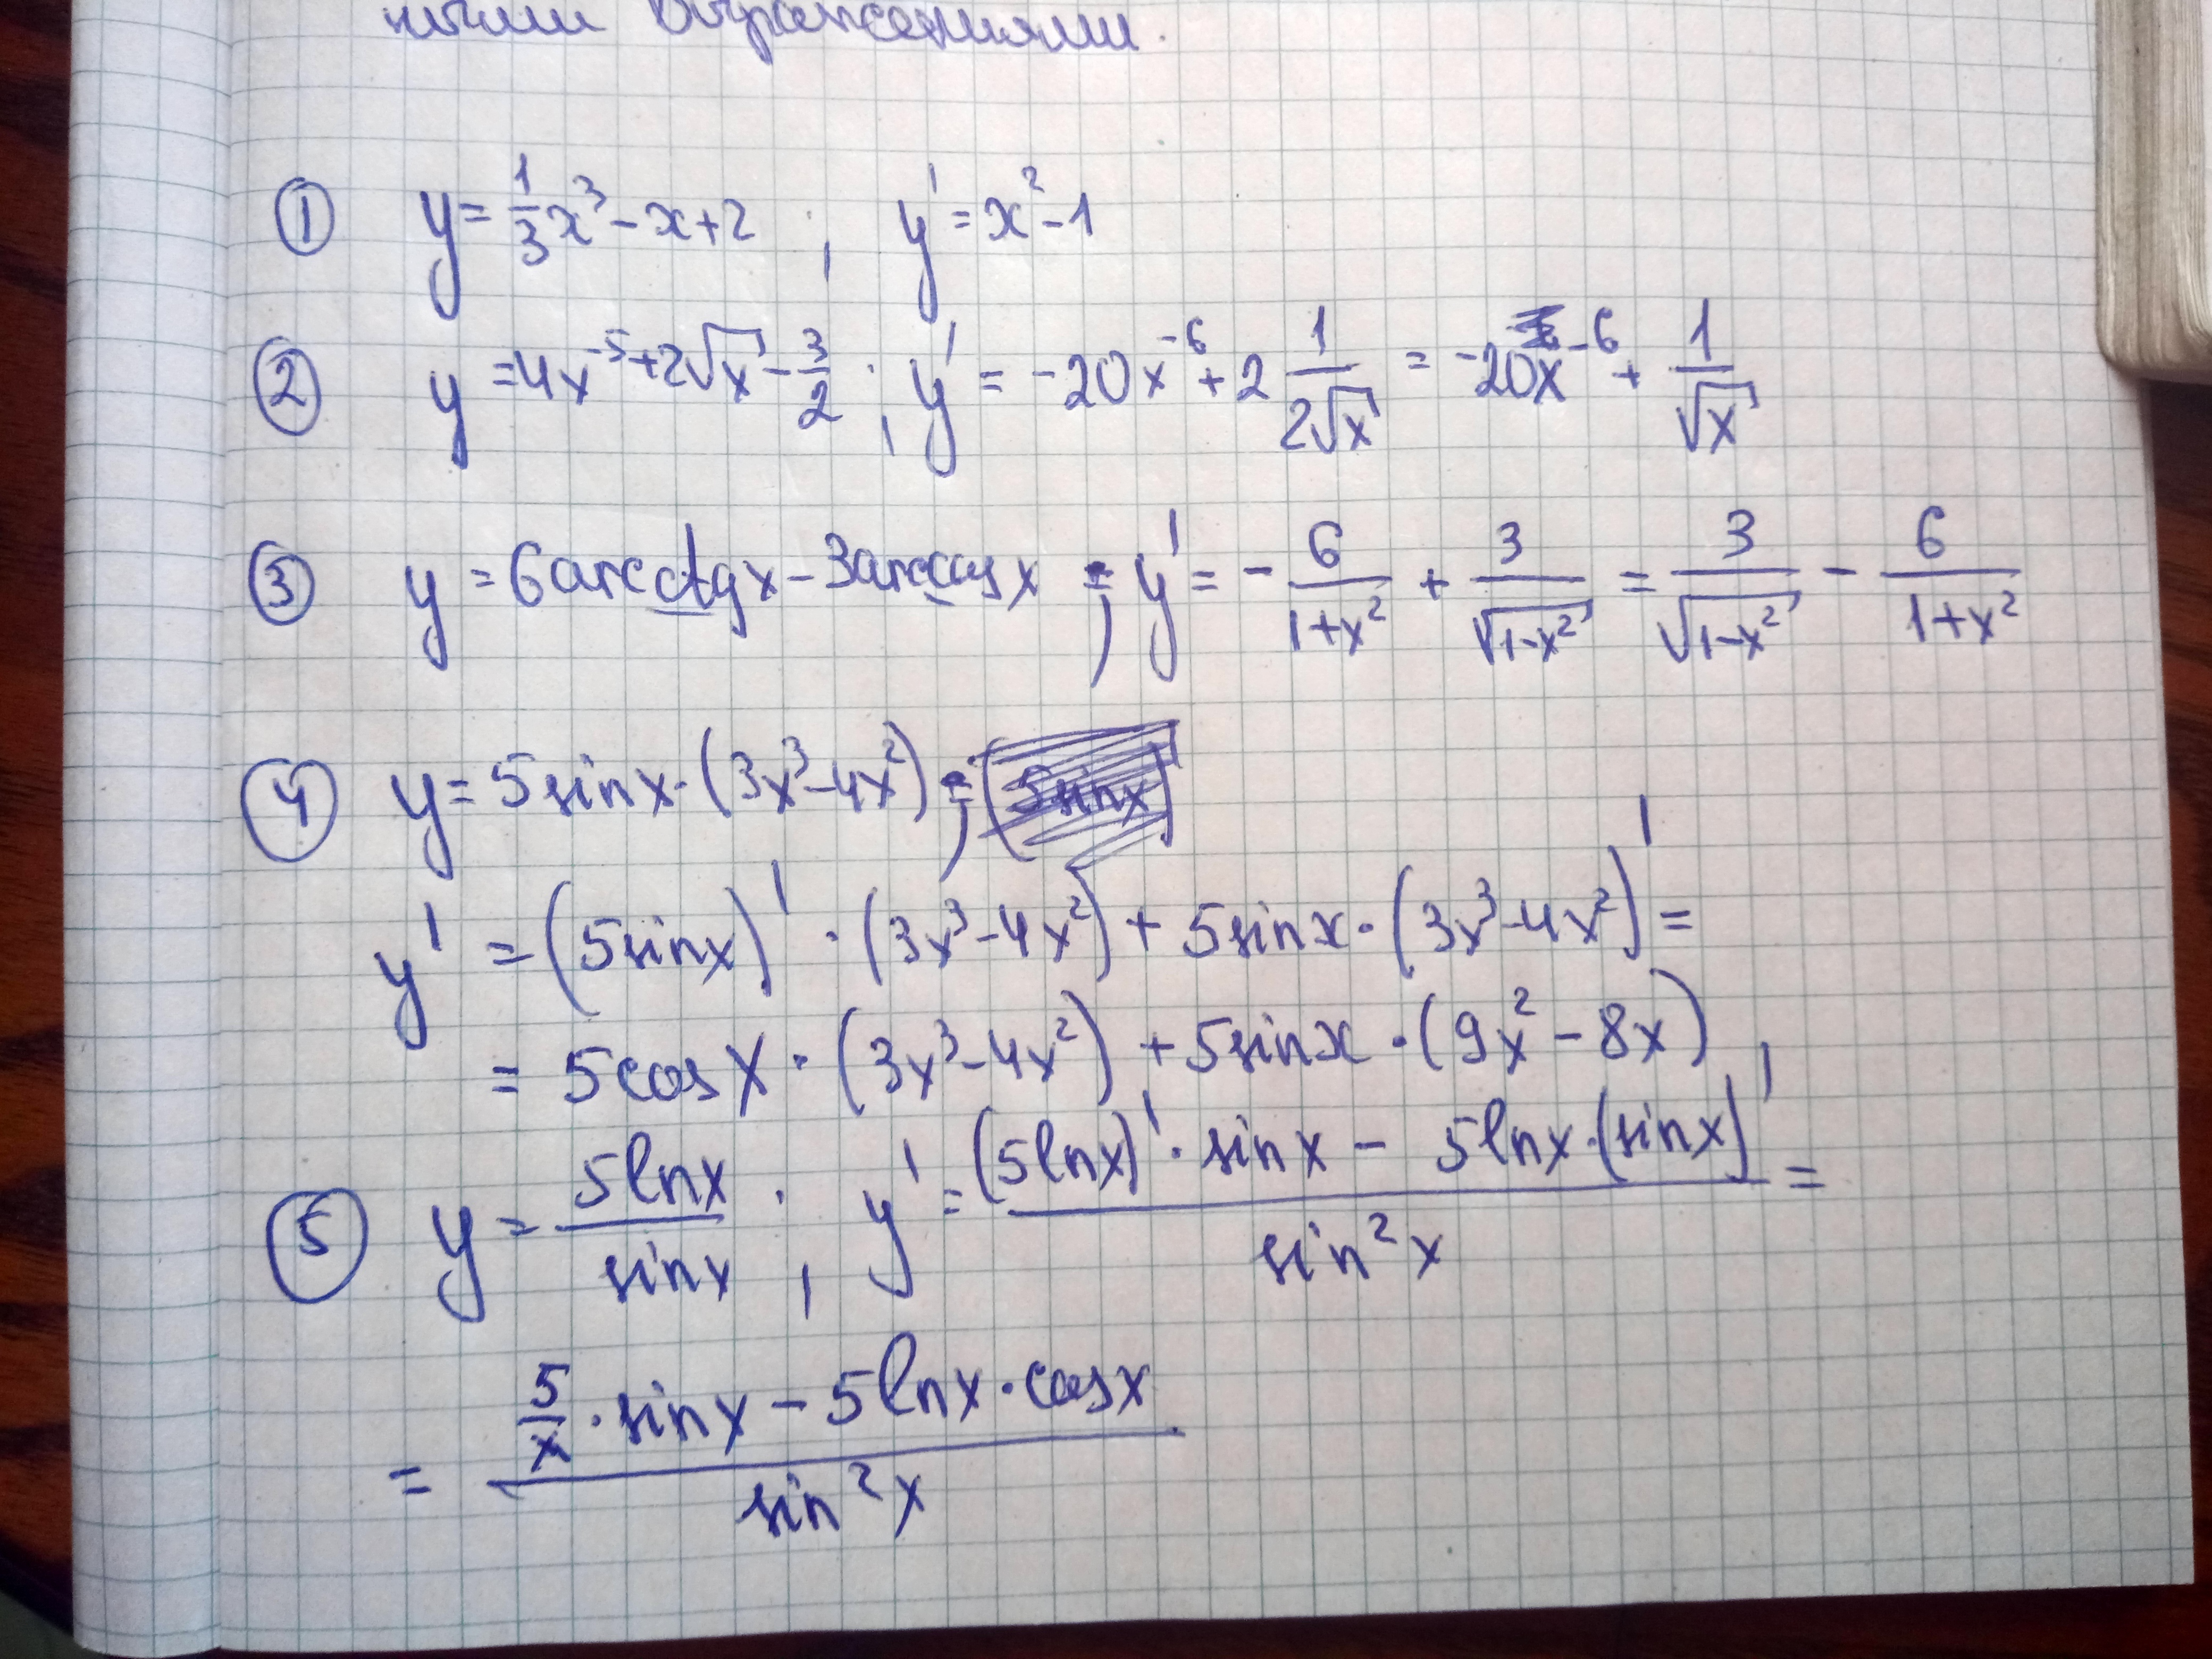 ными выражениями.
① y = 1/3 x³ - x + 2 ; y' = x² - 1
② y = 4x⁻⁵ + 2√x - 3/2 ; y' = -20x⁻⁶ + 2 1/(2√x) = -20x⁻⁶ + 1/√x
③ y = 6arcctgx - 3arccosx ; y' = - 6/(1+x²) + 3/√(1-x²) = 3/√(1-x²) - 6/(1+x²)
④ y = 5sinx·(3x³-4x²) ;
y' = (5sinx)'·(3x³-4x²) + 5sinx·(3x³-4x²)' =
= 5cosx·(3x³-4x²) + 5sinx·(9x²-8x)
⑤ y = 5lnx/sinx ; y' = ((5lnx)'·sinx - 5lnx·(sinx)')/sin²x =
= (5/x·sinx - 5lnx·cosx)/sin²x